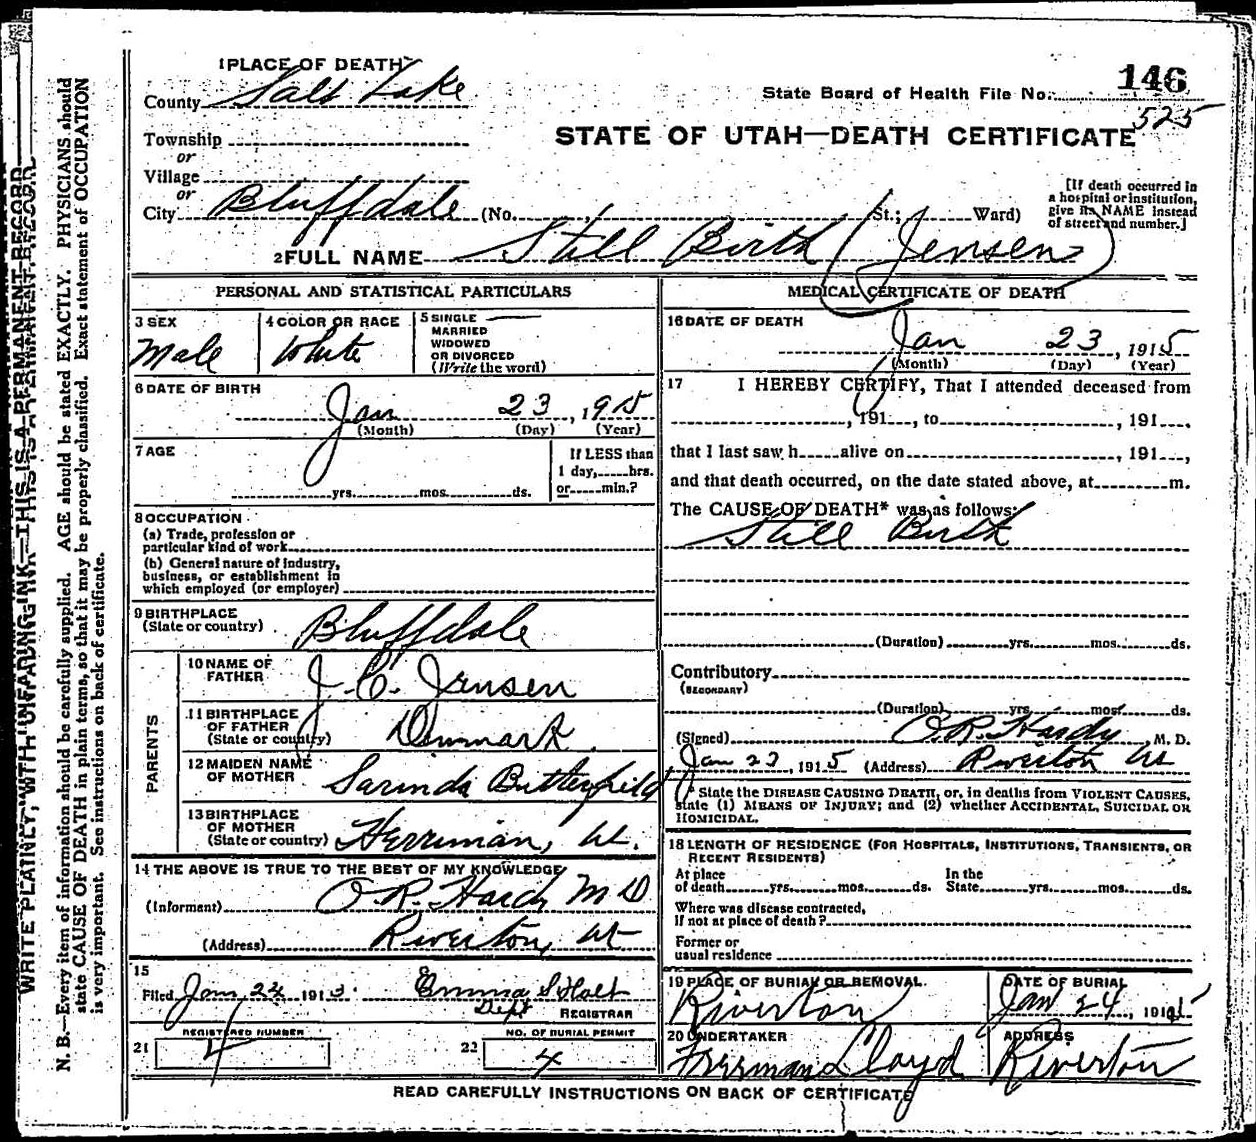 1 PLACE OF DEATH
146
County Salt Lake
State Board of Health File No.
525
Township
or
STATE OF UTAH—DEATH CERTIFICATE
Village
or
City Bluffdale (No. , St.; Ward)
[If death occurred in
a hospital or institution,
give its NAME instead
of street and number.]
2 FULL NAME Still Birth (Jensen)
PERSONAL AND STATISTICAL PARTICULARS
3 SEX
Male
4 COLOR OR RACE
White
5 SINGLE
MARRIED
WIDOWED
OR DIVORCED
(Write the word)
6 DATE OF BIRTH
Jan 23, 1915
(Month) (Day) (Year)
7 AGE
yrs. mos. ds.
If LESS than
1 day, hrs.
or min.?
8 OCCUPATION
(a) Trade, profession or
particular kind of work
(b) General nature of industry,
business, or establishment in
which employed (or employer)
9 BIRTHPLACE
(State or country)
Bluffdale
PARENTS
10 NAME OF
FATHER
J. C. Jensen
11 BIRTHPLACE
OF FATHER
(State or country)
Denmark
12 MAIDEN NAME
OF MOTHER
Sarinda Butterfield
13 BIRTHPLACE
OF MOTHER
(State or country)
Herriman, Ut.
14 THE ABOVE IS TRUE TO THE BEST OF MY KNOWLEDGE
(Informant) O. R. Hardy M D
(Address) Riverton, Ut
15
Filed Jan 24 1913. Emma S Holt
Dept REGISTRAR
REGISTERED NUMBER
21 4
NO. OF BURIAL PERMIT
22 4
MEDICAL CERTIFICATE OF DEATH
16 DATE OF DEATH
Jan 23, 1915
(Month) (Day) (Year)
17 I HEREBY CERTIFY, That I attended deceased from
, 191 , to , 191 ,
that I last saw h alive on , 191 ,
and that death occurred, on the date stated above, at m.
The CAUSE OF DEATH* was as follows:
Still Birth
(Duration) yrs. mos. ds.
Contributory
(SECONDARY)
(Duration) yrs. mos. ds.
(Signed) O. R. Hardy, M. D.
Jan 23, 1915 (Address) Riverton Ut
* State the DISEASE CAUSING DEATH, or, in deaths from VIOLENT CAUSES,
state (1) MEANS OF INJURY; and (2) whether ACCIDENTAL, SUICIDAL OR
HOMICIDAL.
18 LENGTH OF RESIDENCE (FOR HOSPITALS, INSTITUTIONS, TRANSIENTS, OR
RECENT RESIDENTS)
At place
of death yrs. mos. ds.
In the
State yrs. mos. ds.
Where was disease contracted,
If not at place of death?
Former or
usual residence
19 PLACE OF BURIAL OR REMOVAL.
Riverton
DATE OF BURIAL
Jan 24, 1915
20 UNDERTAKER
Freeman Lloyd
ADDRESS
Riverton
READ CAREFULLY INSTRUCTIONS ON BACK OF CERTIFICATE
WRITE PLAINLY, WITH UNFADING INK—THIS IS A PERMANENT RECORD
N. B.—Every item of information should be carefully supplied. AGE should be stated EXACTLY. PHYSICIANS should
state CAUSE OF DEATH in plain terms, so that it may be properly classified. Exact statement of OCCUPATION
is very important. See instructions on back of certificate.